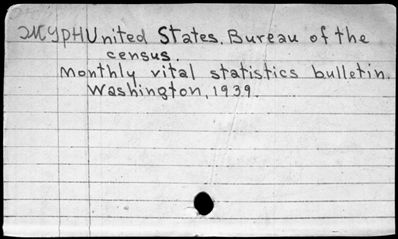 ЖУРНUnited States. Bureau of the
census.
Monthly vital statistics bulletin.
Washington, 1939.